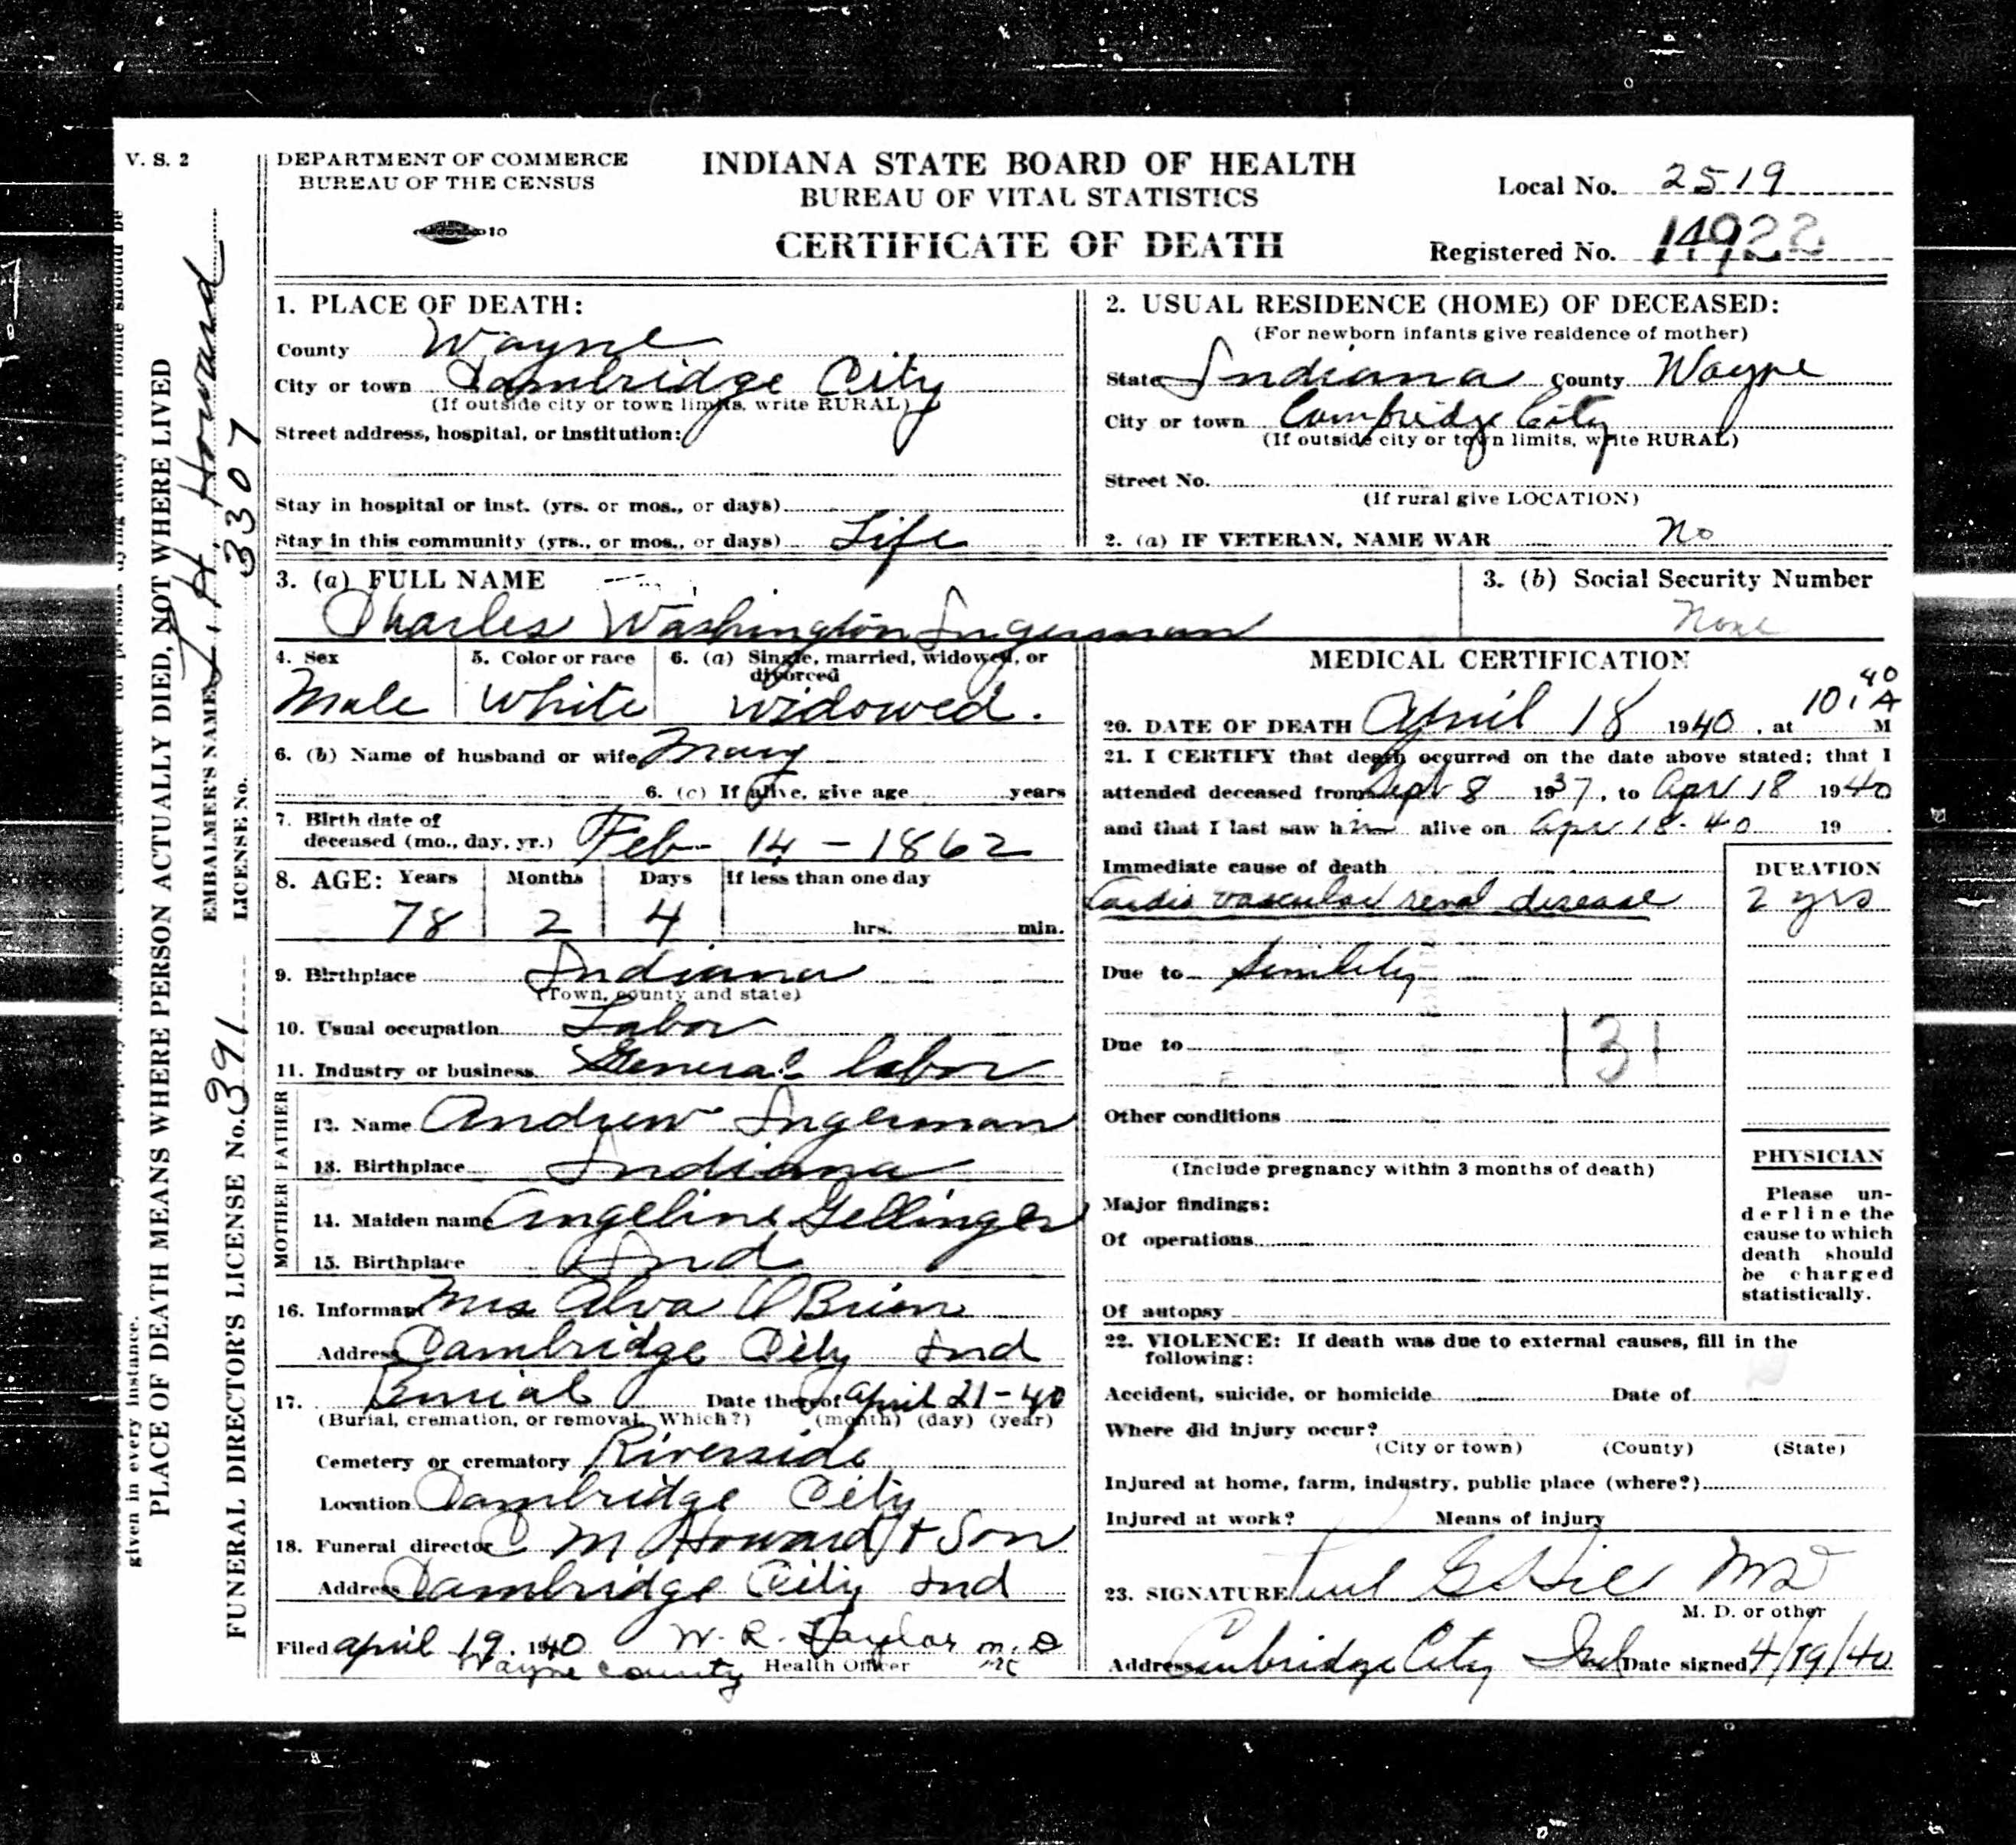 V. S. 2
DEPARTMENT OF COMMERCE
BUREAU OF THE CENSUS
INDIANA STATE BOARD OF HEALTH
BUREAU OF VITAL STATISTICS
CERTIFICATE OF DEATH
Local No. 2519
Registered No. 14922
1. PLACE OF DEATH:
County Wayne
City or town Cambridge City
(If outside city or town limits, write RURAL)
Street address, hospital, or institution:
Stay in hospital or inst. (yrs. or mos., or days)
Stay in this community (yrs., or mos., or days) Life
2. USUAL RESIDENCE (HOME) OF DECEASED:
(For newborn infants give residence of mother)
State Indiana County Wayne
City or town Cambridge City
(If outside city or town limits, write RURAL)
Street No.
(If rural give LOCATION)
2. (a) IF VETERAN, NAME WAR No
3. (a) FULL NAME
Charles Washington Ingerman
3. (b) Social Security Number
None
4. Sex
Male
5. Color or race
White
6. (a) Single, married, widowed, or
divorced
widowed.
6. (b) Name of husband or wife Mary
6. (c) If alive, give age years
7. Birth date of
deceased (mo., day, yr.) Feb - 14 - 1862
8. AGE: Years Months Days If less than one day
78 2 4 hrs. min.
9. Birthplace Indiana
(Town, county and state)
10. Usual occupation Labor
11. Industry or business General labor
FATHER
12. Name Andrew Ingerman
13. Birthplace Indiana
MOTHER
14. Maiden name Angeline Gellinger
15. Birthplace Ind
16. Informant Mrs Alva O Brien
Address Cambridge City Ind
17. Burial Date thereof April 21-40
(Burial, cremation, or removal. Which?) (month) (day) (year)
Cemetery or crematory Riverside
Location Cambridge City
18. Funeral director C M Howard + Son
Address Cambridge City Ind
Filed April 19, 1940 W. R. Taylor M.D
Wayne County Health Officer
MEDICAL CERTIFICATION
20. DATE OF DEATH April 18 1940, at 10:40 A M
21. I CERTIFY that death occurred on the date above stated; that I
attended deceased from Sept 8 1937, to Apr 18 1940
and that I last saw him alive on Apr 18-40 19
Immediate cause of death
Cardio vascular renal disease
DURATION
2 yrs
Due to Senility
Due to 131
Other conditions
(Include pregnancy within 3 months of death)
Major findings:
Of operations
Of autopsy
PHYSICIAN
Please un-
derline the
cause to which
death should
be charged
statistically.
22. VIOLENCE: If death was due to external causes, fill in the
following:
Accident, suicide, or homicide Date of
Where did injury occur?
(City or town) (County) (State)
Injured at home, farm, industry, public place (where?)
Injured at work? Means of injury
23. SIGNATURE Paul G MD
M. D. or other
Address Cambridge City Ind Date signed 4/19/40
given in every instance.
PLACE OF DEATH MEANS WHERE PERSON ACTUALLY DIED, NOT WHERE LIVED
EMBALMER'S NAME H. Howard
LICENSE No. 3307
FUNERAL DIRECTOR'S LICENSE No. 391